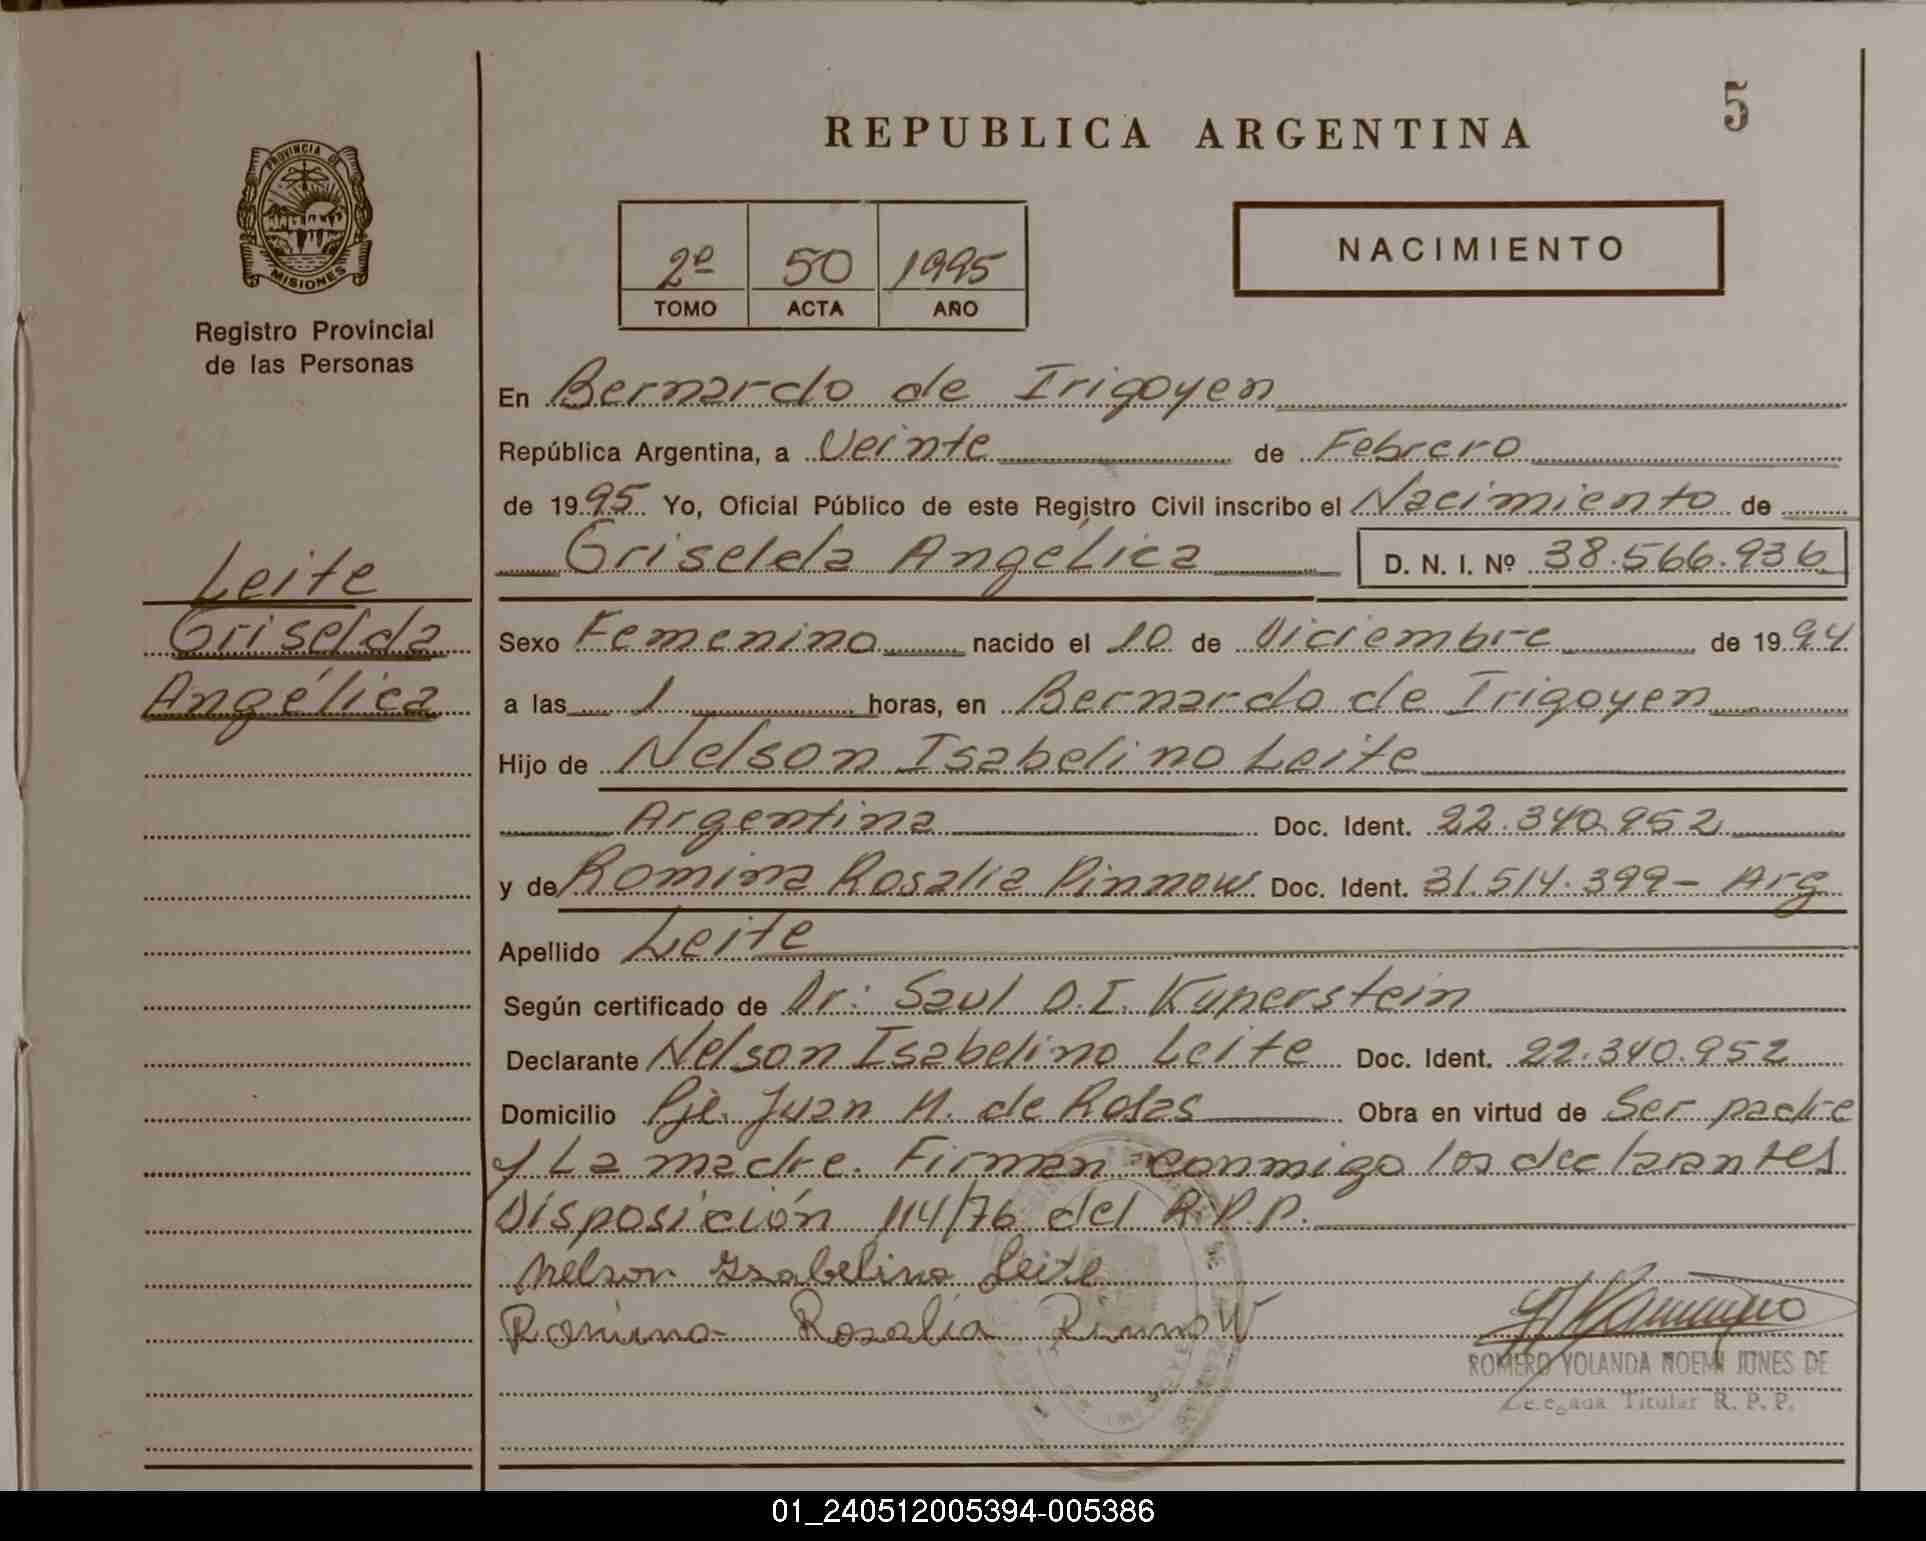 5
REPUBLICA ARGENTINA
PROVINCIA DE
MISIONES
Registro Provincial
de las Personas
2º 50 1995
TOMO ACTA AÑO
NACIMIENTO
Leite
Griselda
Angélica
En Bernardo de Irigoyen
República Argentina, a Veinte de Febrero
de 1995 Yo, Oficial Público de este Registro Civil inscribo el Nacimiento de
Griselda Angélica D. N. I. Nº 38.566.936
Sexo Femenino nacido el 10 de Diciembre de 1994
a las 1 horas, en Bernardo de Irigoyen
Hijo de Nelson Isabelino Leite
Argentina Doc. Ident. 22.340.952
y de Romina Rosalia Pinnow Doc. Ident. 31.514.399 - Arg
Apellido Leite
Según certificado de Dr: Saul O.I. Kuperstein
Declarante Nelson Isabelino Leite Doc. Ident. 22.340.952
Domicilio Pje. Juan M. de Rosas Obra en virtud de Ser padre
y La madre. Firman conmigo los declarantes
Disposición 114/76 del R.P.P.
Nelson Isabelino Leite
Romina Rosalia Pinnow
ROMERO YOLANDA NOEMI JUNES DE
Delegada Titular R. P. P.
01_240512005394-005386